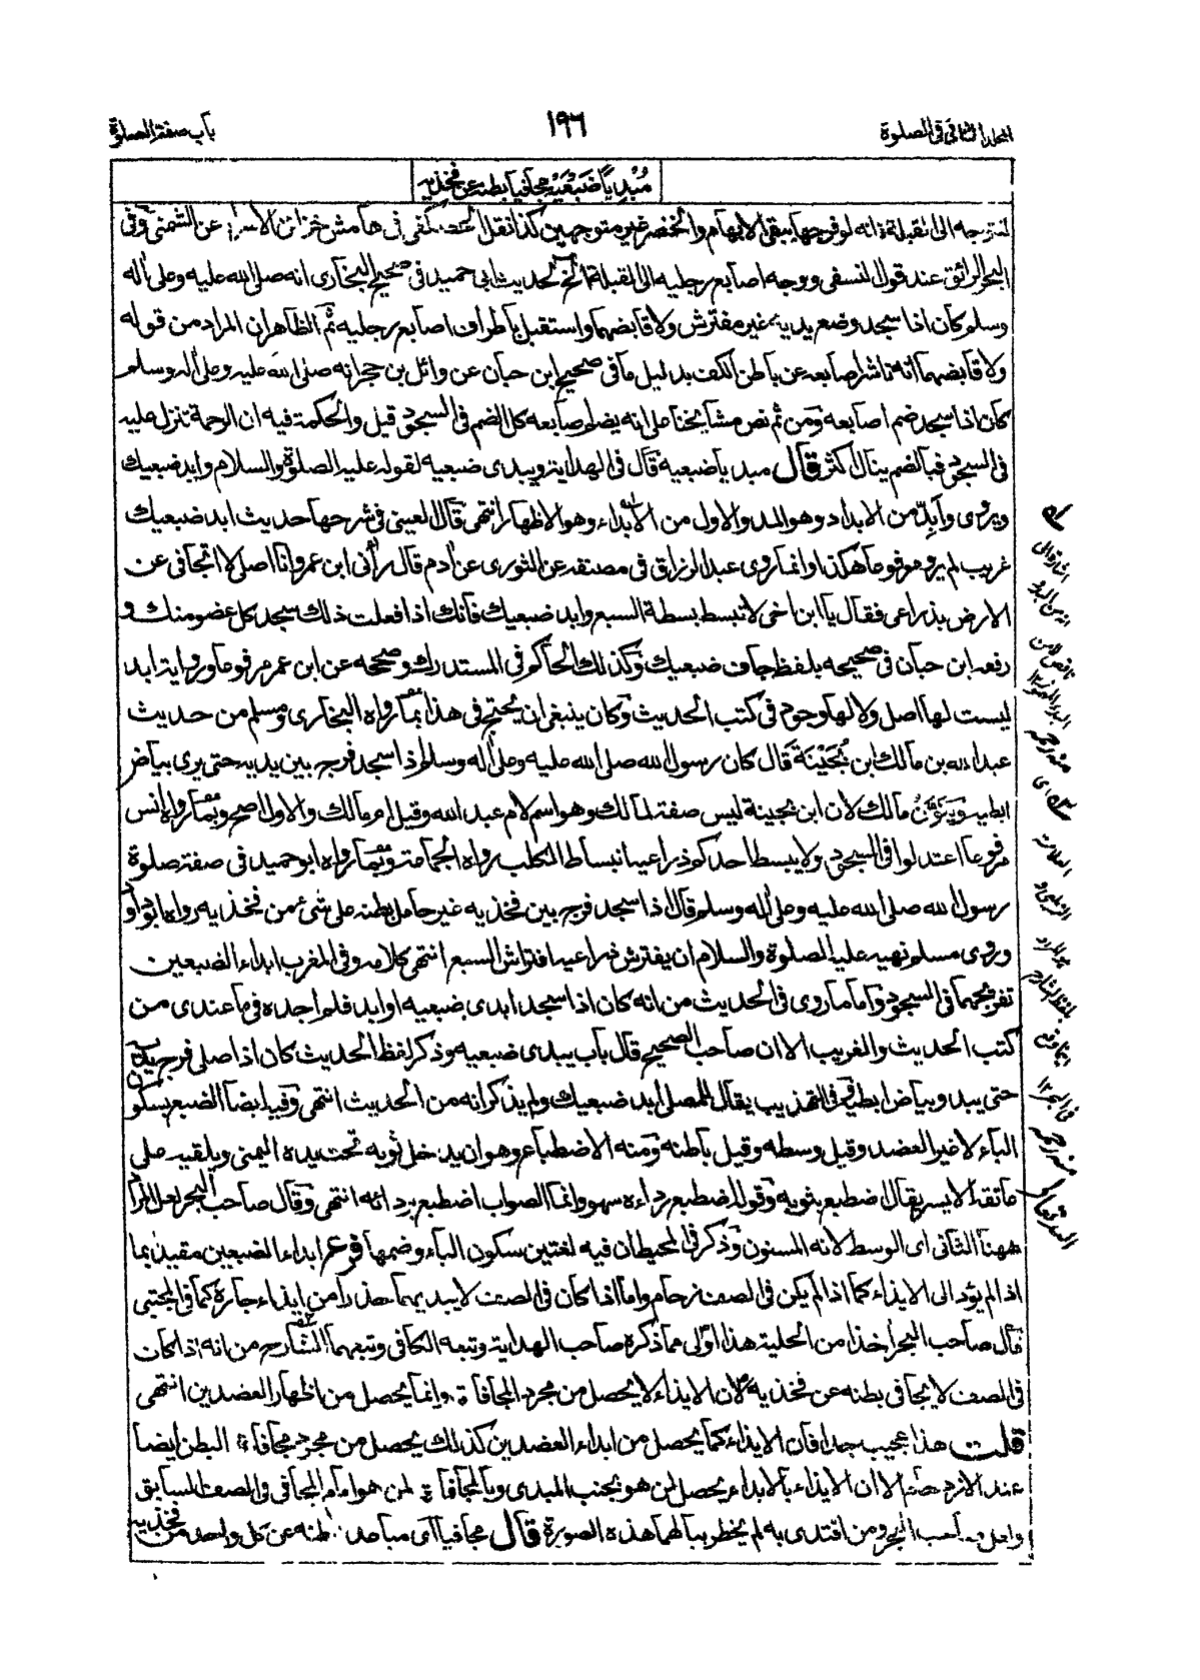 المجلد الثانى فى الصلوة
١٩٦
باب صفة الصلوة
مُبْدِيًا ضَبْعَيْهِ مجافيا بطنه عن فخذيه
لتتوجه الى القبلة فانه لو فرجها يبقى الابهام والخنصر غير متوجهين كذا نقل فى هامش خزائن الاسرار عن الشمنى وفى
البحر الرائق عند قول النسفى ووجه اصابع رجليه الى القبلة الخ لحديث ابى حميد فى صحيح البخارى انه صلى الله عليه وعلى آله
وسلم كان اذا سجد وضع يديه غير مفترش ولا قابضهما واستقبل باطراف اصابع رجليه ثم الظاهر ان المراد من قوله
ولا قابضهما انه ناشر اصابعه عن باطن الكف بدليل ما فى صحيح ابن حبان عن وائل بن حجر انه صلى الله عليه وعلى آله وسلم
كان اذا سجد ضم اصابعه ومن ثم نص مشايخنا على انه يضم اصابعه كل الضم فى السجود قيل والحكمة فيه ان الرحمة تنزل عليه
فى السجود فبالضم ينال اكثر قال مبديا ضبعيه قال فى الهداية ويبدى ضبعيه لقوله عليه الصلوة والسلام وابد ضبعيك
ويروى وأبِدّ من الابداد وهو المد والاول من الابداء وهو الاظهار انتهى قال العينى فى شرحها حديث ابد ضبعيك
غريب لم يرو مرفوعا هكذا وانما روى عبد الرزاق فى مصنفه عن الثورى عن آدم قال رآنى ابن عمر وانا اصلى لا اتجافى عن
الارض بذراعى فقال يا ابن اخى لا تبسط بسطة السبع وابد ضبعيك فانك اذا فعلت ذلك سجد كل عضو منك و
رفعه ابن حبان فى صحيحه بلفظ جاف ضبعيك وكذلك الحاكم فى المستدرك وصححه عن ابن عمر مرفوعا ورواية ابد
ليست لها اصل ولا لها وجود فى كتب الحديث وكان ينبغى ان يحتج فى هذا بما رواه البخارى ومسلم من حديث
عبد الله بن مالك ابن بُحَيْنَة قال كان رسول الله صلى الله عليه وعلى آله وسلم اذا سجد فرج بين يديه حتى يرى بياض
ابطيه وينوَّن مالك لان ابن بحينة ليس صفة لمالك وهو اسم لام عبد الله وقيل ام مالك والاول اصح وبما رواه انس
مرفوعا اعتدلوا فى السجود ولا يبسط احدكم ذراعيه انبساط الكلب رواه الجماعة وبما رواه ابو حميد فى صفة صلوة
رسول الله صلى الله عليه وعلى آله وسلم قال اذا سجد فرج بين فخذيه غير حامل بطنه على شئ من فخذيه رواه ابو داود
وروى مسلم نهيه عليه الصلوة والسلام ان يفترش ذراعيه افتراش السبع انتهى كلامه وفى المغرب ابداء الضبعين
تفريجهما فى السجود واما ما روى فى الحديث من انه كان اذا سجد ابدى ضبعيه او ابد فلم اجده فيما عندى من
كتب الحديث والغريب الا ان صاحب الصحيح قال باب يبدى ضبعيه وذكر لفظ الحديث كان اذا صلى فرج يديه
حتى يبدو بياض ابطيه وفى التهذيب يقال للمصلى ابد ضبعيك ولم يذكر انه من الحديث انتهى وفيه ايضا الضبع بسكون
الباء لا غير العضد وقيل وسطه وقيل باطنه ومنه الاضطباع وهو ان يدخل ثوبه تحت يده اليمنى ويلقيه على
عاتقه الايسر يقال اضطبع بثوبه وقوله اضطبع رداءه سهو وانما الصواب اضطبع بردائه انتهى وقال صاحب البحر لعل المراد
ههنا الثانى اى الوسط لانه المسنون وذكر فى المحيط ان فيه لغتين سكون الباء وضمها فوعم ابداء الضبعين مقيد بما
اذا لم يؤد الى الايذاء كما اذا لم يكن فى الصف زحام واما اذا كان فى الصف لا يبديهما حذرا من ايذاء جاره كما فى المجتبى
قال صاحب البحر اخذا من الحلية هذا اولى مما ذكره صاحب الهداية وتبعه الكافى وتبعهما الشارح من انه اذا كان
فى الصف لا يجافى بطنه عن فخذيه لان الايذاء لا يحصل من مجرد المجافاة وانما يحصل من اظهار العضدين انتهى
قلت هذا عجيب جدا فان الايذاء كما يحصل من ابداء العضدين كذلك يحصل من مجرد مجافاة البطن ايضا
عند الازدحام الا ان الايذاء بالابداء يحصل لمن هو بجنب المبدى وبالمجافاة لمن هو امام المجافى فى الصف السابق
ولعل صاحب البحر ومن اقتدى به لم يخطر ببالهما هذه الصورة قال مجافيا اى مباعدا بطنه عن كل واحد من فخذيه